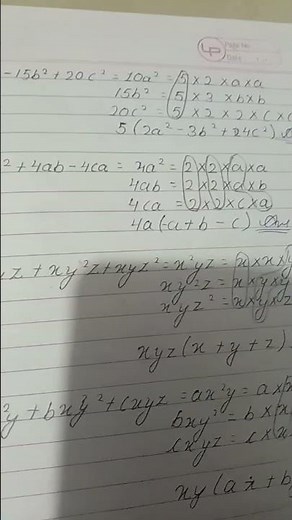 - 15b² + 20c² = 10a² = 5 × 2 × a × a
15b² = 5 × 3 × b × b
20c² = 5 × 2 × 2 × c ×
5 (2a² - 3b² + 24c²)
² + 4ab - 4ca = 4a² = 2 × 2 × a × a
4ab = 2 × 2 × a × b
4ca = 2 × 2 × c × a
4a (-a + b - c)
yz + xy²z + xyz² = x²yz = x × x ×
xy²z = x × y ×
xyz² = x × y × z
xyz (x + y + z)
²y + bxy² + cxyz = ax²y = a ×
bxy² = b ×
cxyz = c × x
xy (ax + b